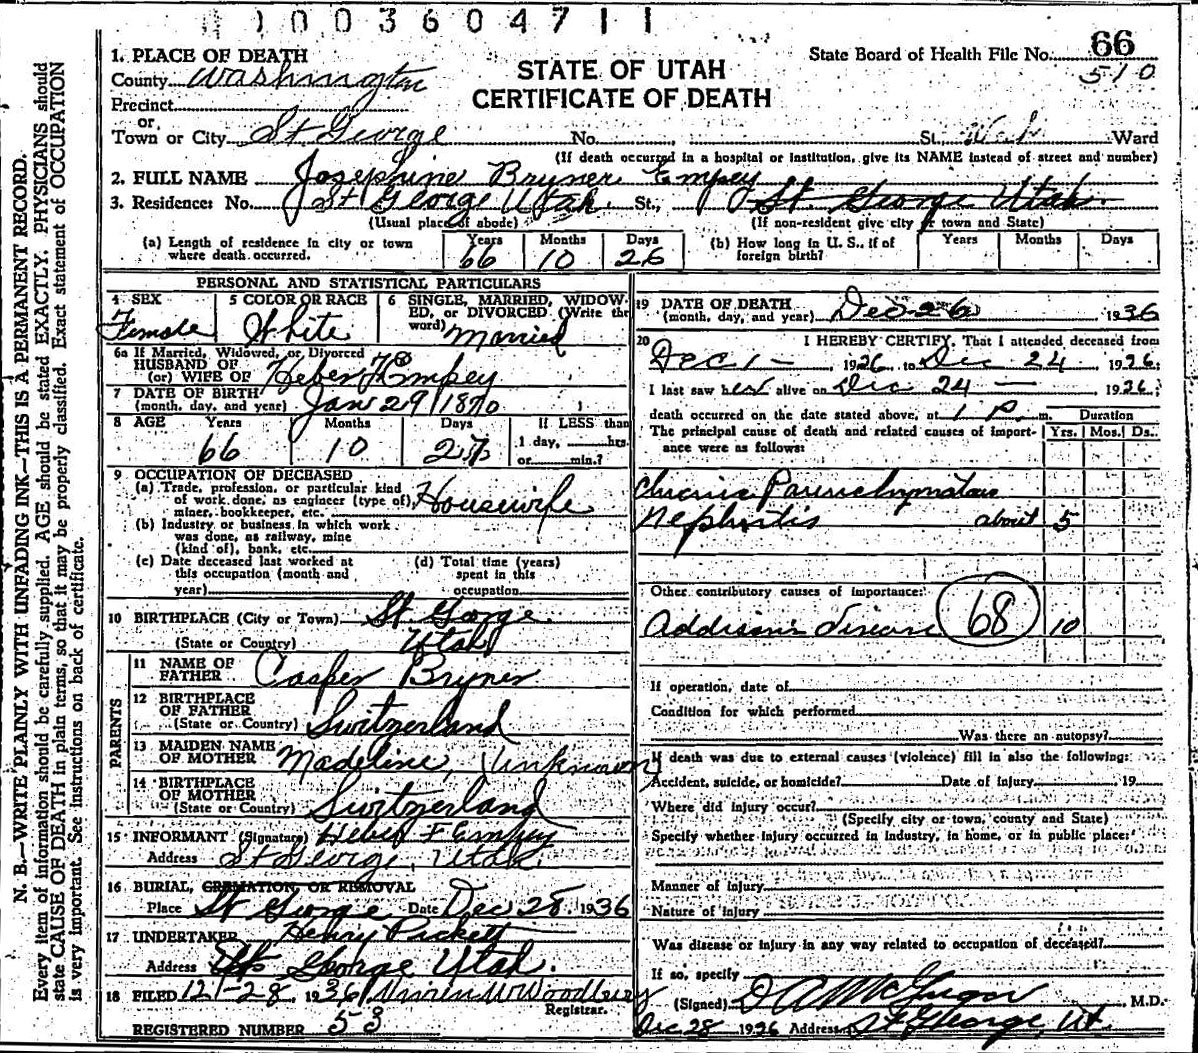 003604711
66
State Board of Health File No.
510
STATE OF UTAH
CERTIFICATE OF DEATH
1. PLACE OF DEATH
County Washington
Precinct
or
Town or City St George No. St., Ward
(If death occurred in a hospital or institution, give its NAME instead of street and number)
2. FULL NAME Josephine Bryner Empey
3. Residence: No. St George Utah. St., St George Utah.
(Usual place of abode) (If non-resident give city or town and State)
(a) Length of residence in city or town where death occurred. Years 66 Months 10 Days 26
(b) How long in U. S., if of foreign birth? Years Months Days
PERSONAL AND STATISTICAL PARTICULARS
4 SEX Female
5 COLOR OR RACE White
6 SINGLE, MARRIED, WIDOWED, or DIVORCED (Write the word) Married
6a If Married, Widowed, or Divorced
HUSBAND OF
(or) WIFE OF Heber F Empey
7 DATE OF BIRTH
(month, day, and year) Jan 29 1870
8 AGE Years 66 Months 10 Days 27
If LESS than 1 day, hrs. or min.?
9 OCCUPATION OF DECEASED
(a) Trade, profession, or particular kind of work done, as engineer (type of), miner, bookkeeper, etc. Housewife
(b) Industry or business in which work was done, as railway, mine (kind of), bank, etc.
(c) Date deceased last worked at this occupation (month and year)
(d) Total time (years) spent in this occupation
10 BIRTHPLACE (City or Town) St. George
(State or Country) Utah
PARENTS
11 NAME OF FATHER Casper Bryner
12 BIRTHPLACE OF FATHER
(State or Country) Switzerland
13 MAIDEN NAME OF MOTHER Madeline, Unknown
14 BIRTHPLACE OF MOTHER
(State or Country) Switzerland
15 INFORMANT (Signature) Heber F Empey
Address St George, Utah.
16 BURIAL, CREMATION, OR REMOVAL
Place St George Date Dec 28 1936
17 UNDERTAKER Henry Pickett
Address St George Utah.
18 FILED 12-28, 1936 W Woodbury
Registrar.
REGISTERED NUMBER 53
19 DATE OF DEATH
(month, day, and year) Dec 26 1936
20 I HEREBY CERTIFY, That I attended deceased from
Dec 1 - 1926, to Dec 24, 1926.
I last saw her alive on Dec 24 - 1926.
death occurred on the date stated above, at 1 P. m. Duration
The principal cause of death and related causes of importance were as follows: Yrs. Mos. Ds.
Chronic Parenchymatous
Nephritis about 5
Other contributory causes of importance:
Addison's disease 68 10
If operation, date of
Condition for which performed
Was there an autopsy?
If death was due to external causes (violence) fill in also the following:
Accident, suicide, or homicide? Date of injury 19
Where did injury occur?
(Specify city or town, county and State)
Specify whether injury occurred in industry, in home, or in public place:
Manner of injury
Nature of injury
Was disease or injury in any way related to occupation of deceased?
If so, specify
(Signed) D A McGregor M.D.
Dec 28 1926 Address St George, Ut.
N. B.—WRITE PLAINLY WITH UNFADING INK—THIS IS A PERMANENT RECORD.
Every item of information should be carefully supplied. AGE should be stated EXACTLY. PHYSICIANS should
state CAUSE OF DEATH in plain terms, so that it may be properly classified. Exact statement of OCCUPATION
is very important. See instructions on back of certificate.